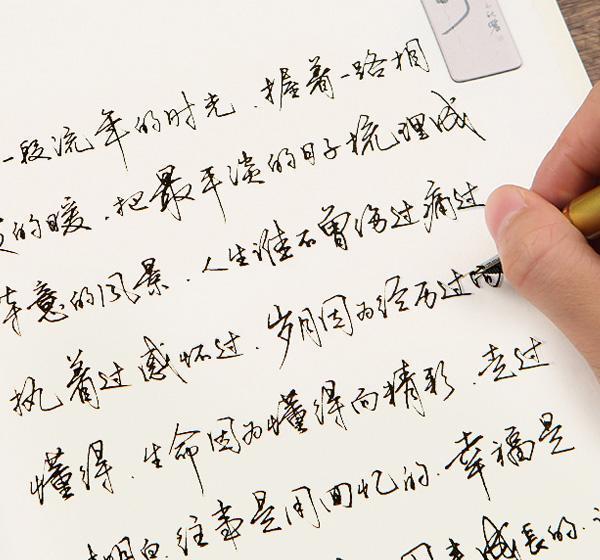 一段流年的时光.握着一路相
的暖.把最平淡的日子梳理成
意的风景.人生谁不曾伤过痛过
执着过感怀过.岁月因为经历过而
懂得.生命因为懂得而精彩.走过
明白.往事是用回忆的.幸福是
来成长的.